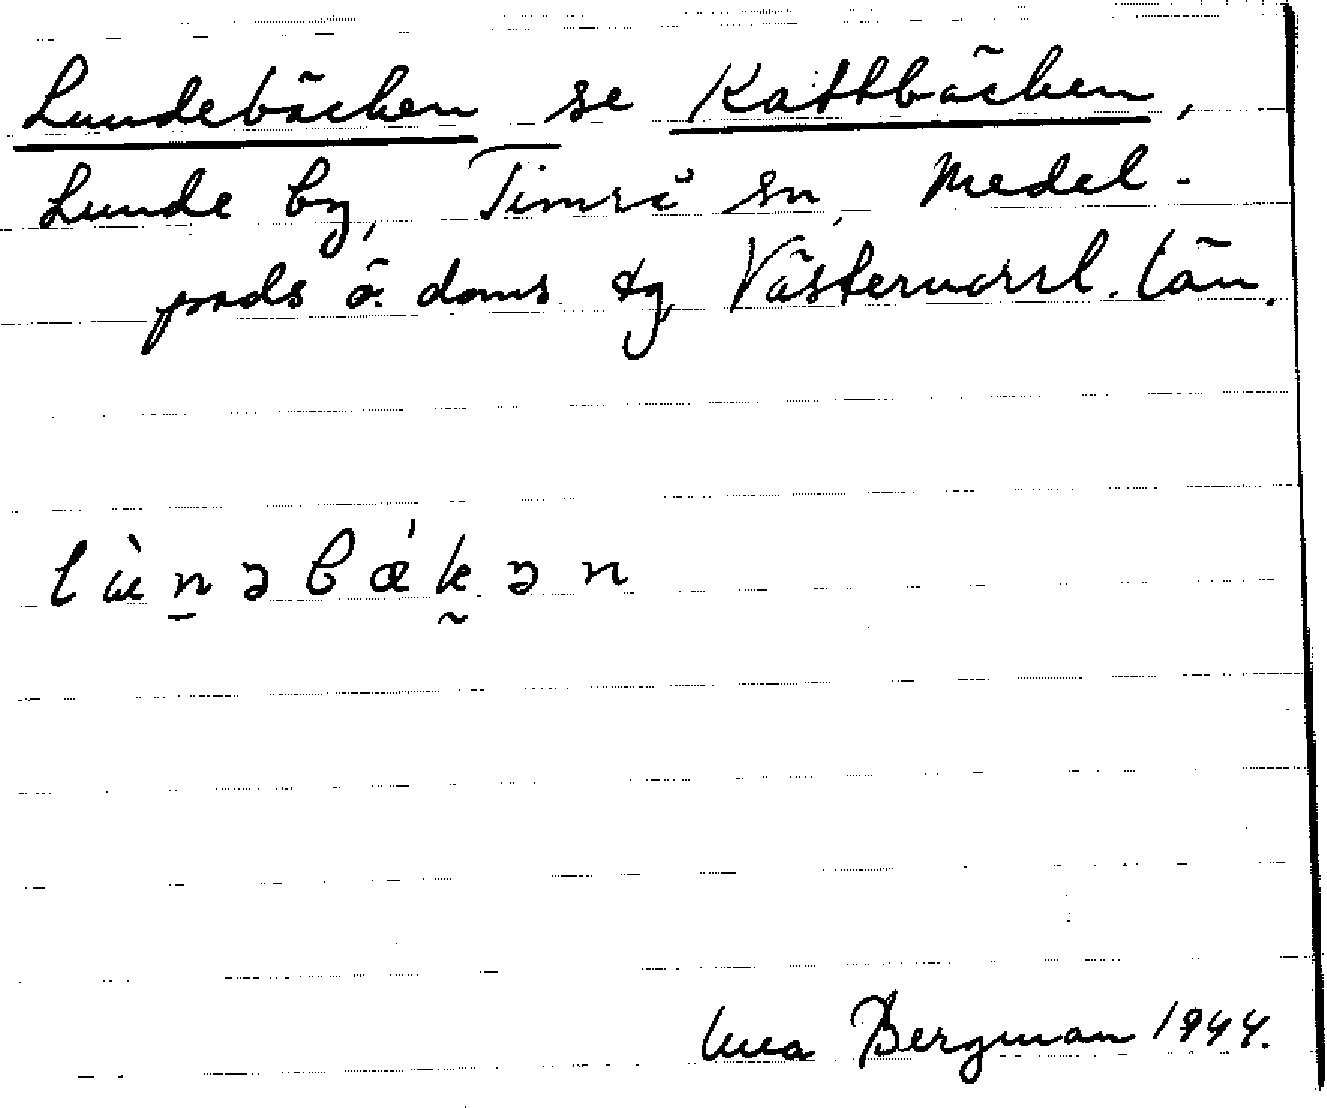 Lundebäcken se Kattbäcken,
Lunde by, Timrå sn, Medel-
pads ö. doms tg, Västernorrl. län.
lùnəbǽkən
Bergman 1944.